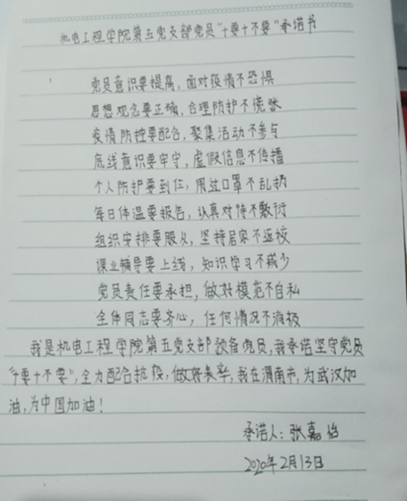 机电工程学院第五党支部党员"十要十不要"承诺书
党员意识要提高，面对疫情不恐惧
思想观念要正确，合理防护不慌张
疫情防控要配合，聚集活动不参与
底线意识要牢守，虚假信息不传播
个人防护要到位，用过口罩不乱扔
每日体温要报告，认真对待不敷衍
组织安排要服从，坚持居家不返校
课业辅导要上线，知识学习不减少
党员责任要承担，做好模范不自私
全体同志要齐心，任何情况不消极
我是机电工程学院第五党支部预备党员，我承诺坚守党员
"十要十不要"，全力配合抗疫，做好表率，我在渭南市，为武汉加
油，为中国加油！
承诺人：张嘉怡
2020年2月13日